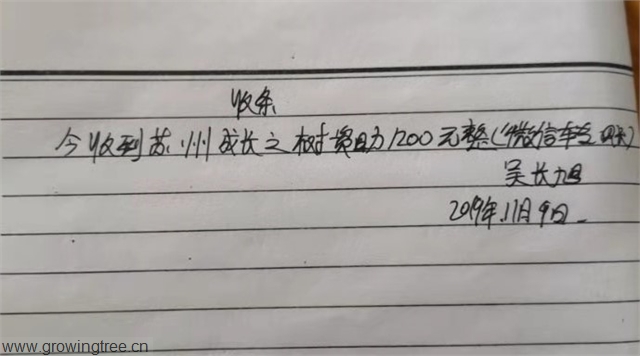 收条
今收到苏州成长之树资助1200元整(微信转
吴长旭
2019年.11月9日.
www.growingtree.cn